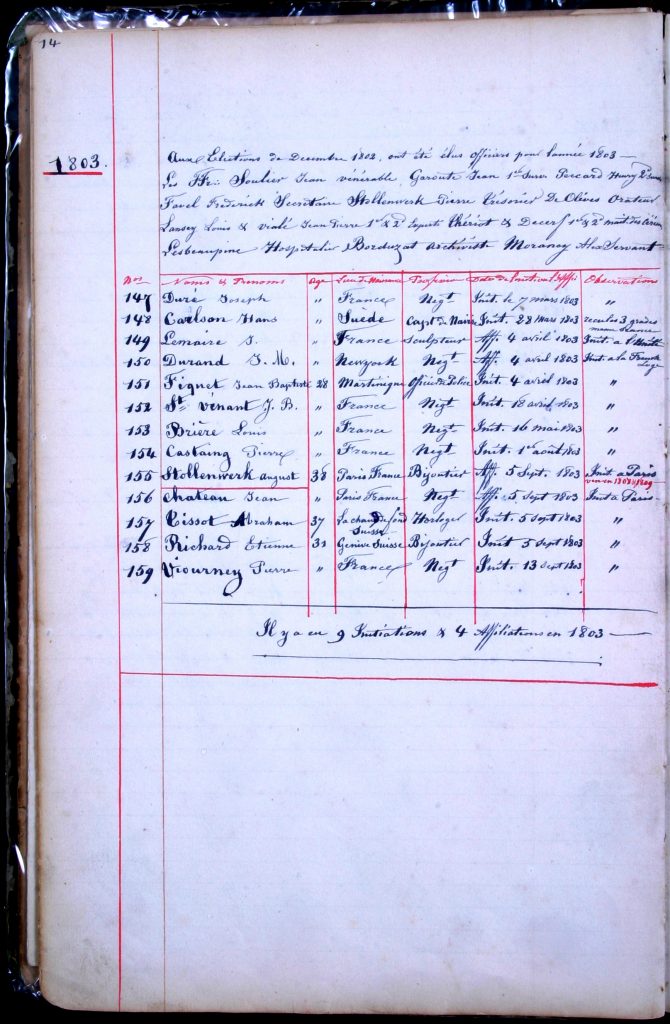 14
1803.
Aux Elections de Decembre 1802, ont été élus Officiers pour l'année 1803 —
Les FF∴ Soulier Jean vénérable, Garoute Jean 1er Surv Poccard Henry 2e Surv
Favel Frederick Secretaire Stollenwerk Pierre Trésorier De Clives Orateur
Lansey Louis & vialé Jean Pierre 1er & 2e Experts Thériot & Decerf 1er & 2e mait. des Cérém
Lesbeaupine Hospitalier Borduzat Architiviste Moranay Alex Servant
Nos Noms & Prenoms Age Lieu de Naissance Profession Date de l'init. ou l'Affil Observations
147 Duré Joseph " France Negt Init. le 7 mars 1803 "
148 Carlson Hans " Suède Capt. de Navire Init. 28 Mars 1803 recu les 3 grades meme seance
149 Lemaire J. " France Sculpteur Aff. 4 avril 1803 Init. a l'
150 Durand J. M. " Newyork Negt Aff. 4 avril 1803 Init. a la French Loge
151 Fiquet Jean Baptiste 28 Martinique Offici. de Police Init. 4 avril 1803 "
152 St. vénant J. B. " France Negt Init. 18 avril 1803 "
153 Brière Louis " France Negt Init. 16 mai 1803 "
154 Castaing Pierre " France Negt Init. 1er août 1803 "
155 Stollenwerk august 38 Paris France Bijoutier Aff. 5 Sept. 1803 Init. a Paris
ven en 1808 & 1809
156 Chateau Jean " Paris France Negt Aff. 5 Sept 1803 Init a Paris
157 Cissot Abraham 37 La chaud de fond Suisse Horloger Init. 5 Sept 1803 "
158 Richard Etienne 31 Genève Suisse Bijoutier Init 5 Sept 1803 "
159 Viourney Pierre " France Negt Init. 13 Sept 1803 "
Il y a eu 9 Initiations & 4 Affiliations en 1803 —